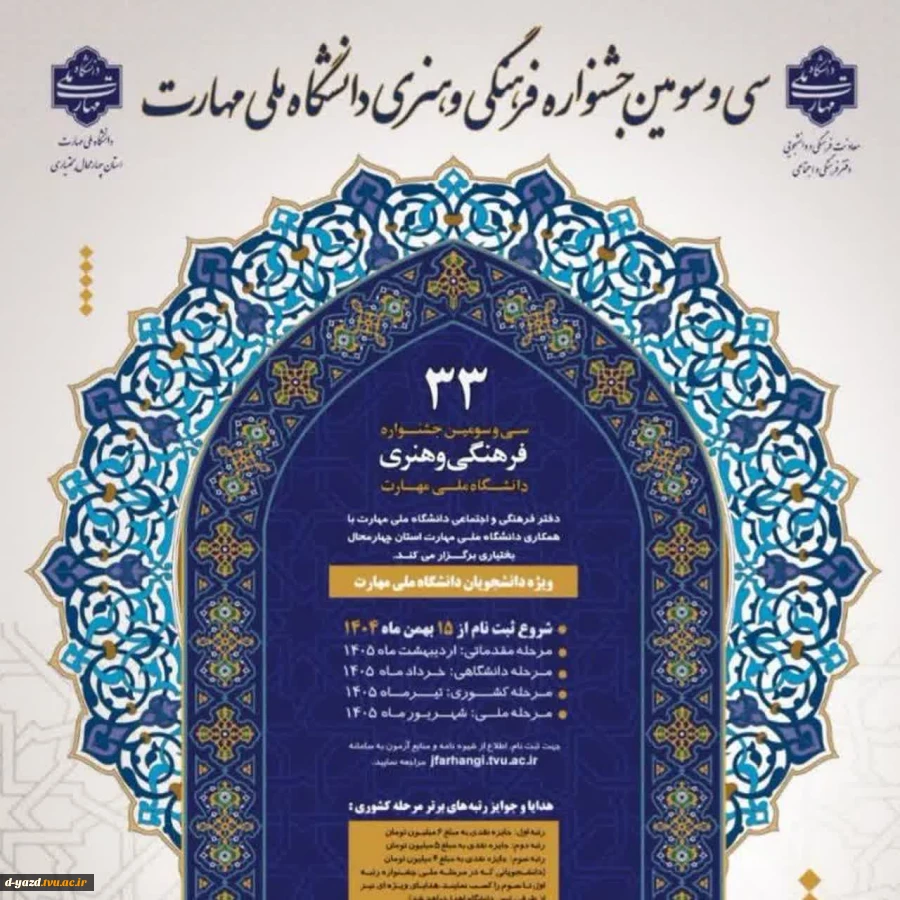 سی و سومین جشنواره فرهنگی و هنری دانشگاه ملی مهارت
دانشگاه ملی مهارت
معاونت فرهنگی و دانشجویی
دفتر فرهنگی و اجتماعی
دانشگاه ملی مهارت
دانشگاه ملی مهارت
استان چهارمحال بختیاری
۳۳
سی و سومین جشنواره
فرهنگی و هنری
دانشگاه ملی مهارت
دفتر فرهنگی و اجتماعی دانشگاه ملی مهارت با
همکاری دانشگاه ملی مهارت استان چهارمحال
بختیاری برگزار می کند.
ویژه دانشجویان دانشگاه ملی مهارت
شروع ثبت نام از ۱۵ بهمن ماه ۱۴۰۴
مرحله مقدماتی: اردیبهشت ماه ۱۴۰۵
مرحله دانشگاهی: خرداد ماه ۱۴۰۵
مرحله کشوری: تیر ماه ۱۴۰۵
مرحله ملی: شهریور ماه ۱۴۰۵
جهت ثبت نام، اطلاع از شیوه نامه و منابع آزمون به سامانه
jfarhangi.tvu.ac.ir مراجعه نمایید.
هدایا و جوایز رتبه های برتر مرحله کشوری :
رتبه اول: جایزه نقدی به مبلغ ۶ میلیون تومان
رتبه دوم: جایزه نقدی به مبلغ ۵ میلیون تومان
رتبه سوم: جایزه نقدی به مبلغ ۴ میلیون تومان
(دانشجویانی که در مرحله ملی جشنواره رتبه
اول تا سوم را کسب نمایند، هدایای ویژه ای نیز
d-yazd.tvu.ac.ir